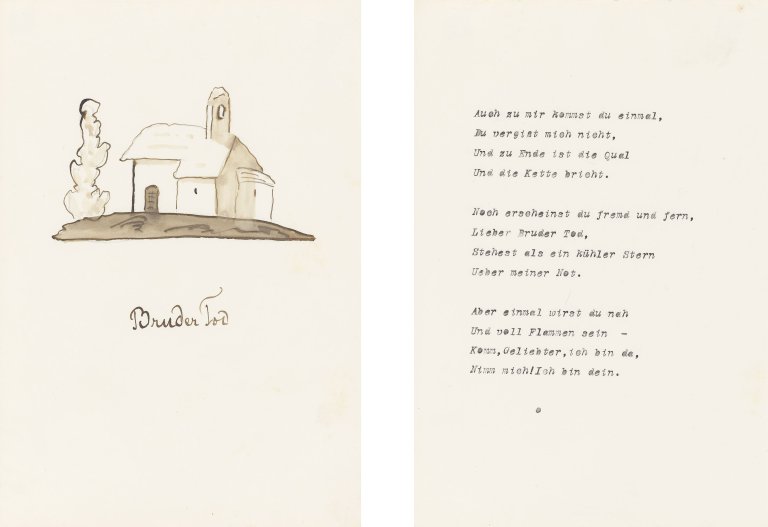 Bruder Tod
Auch zu mir kommst du einmal,
Du vergist mich nicht,
Und zu Ende ist die Qual
Und die Kette bricht.
Noch erscheinst du fremd und fern,
Lieber Bruder Tod,
Stehest als ein kühler Stern
Ueber meiner Not.
Aber einmal wirst du nah
Und voll Flammen sein -
Komm,Geliebter,ich bin da,
Nimm mich!Ich bin dein.